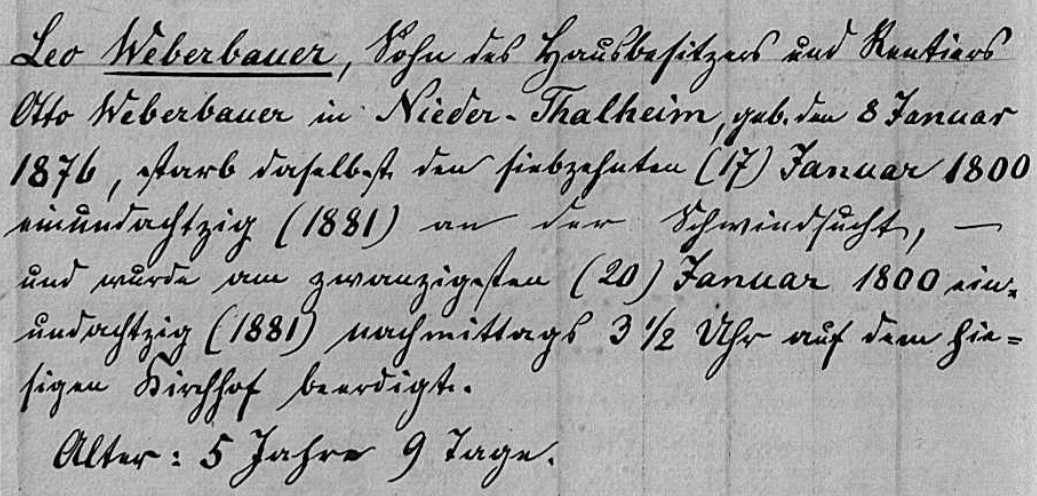 Leo Weberbauer, Sohn des Hausbesitzers und Rentiers
Otto Weberbauer in Nieder-Thalheim, geb. den 8 Januar
1876, starb daselbst den siebzehnten (17) Januar 1800
einundachtzig (1881) an der Schwindsucht, —
und wurde am zwanzigsten (20) Januar 1800 ein=
undachtzig (1881) nachmittags 3 1/2 Uhr auf dem hie=
sigen Kirchhof beerdigt.
Alter: 5 Jahre 9 Tage.